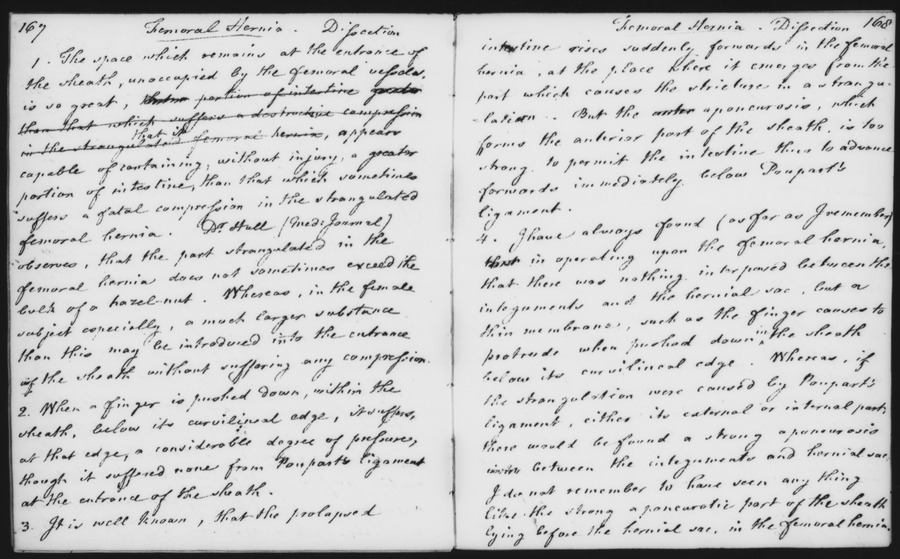 167 Femoral Hernia. Dissection
1. The space which remains at the entrance of
the sheath, unoccupied by the femoral vessels,
is so great, portion of intestine greater
than that which suffers a destructive compression
that it
in the strangulated femoral hernia, appears
capable of containing, without injury, a greater
portion of intestine, than that which sometimes
suffers a fatal compression in the strangulated
femoral hernia. Dr. Hull (Med: Journal)
observes, that the part strangulated in the
femoral hernia does not sometimes exceed the
bulk of a hazel-nut. Whereas, in the female
subject especially, a much larger substance
than this may be introduced into the entrance
of the sheath without suffering any compression.
2. When a finger is pushed down, within the
sheath, below its curvilineal edge, it suffers,
at that edge, a considerable degree of pressure,
though it suffered none from Poupart's ligament
at the entrance of the sheath.
3. It is well known, that the prolapsed
Femoral Hernia. Dissection 168
intestine rises suddenly forwards in the femoral
hernia, at the place where it emerges from the
part which causes the stricture in a strangu-
-lation. But the aponeurosis, which
forms the anterior part of the sheath, is too
strong to permit the intestine thus to advance
forwards immediately below Poupart's
ligament.
4. I have always found (as far as I remember)
in operating upon the femoral hernia,
that there was nothing interposed between the
integuments and the hernial sac, but a
thin membrane, such as the finger causes to
protrude when pushed down in the sheath
below its curvilineal edge. Whereas, if
the strangulation were caused by Poupart's
ligament, either its external or internal part,
there would be found a strong aponeurosis
between the integuments and hernial sac.
I do not remember to have seen any thing
like the strong aponeurotic part of the sheath
lying before the hernial sac, in the femoral hernia.